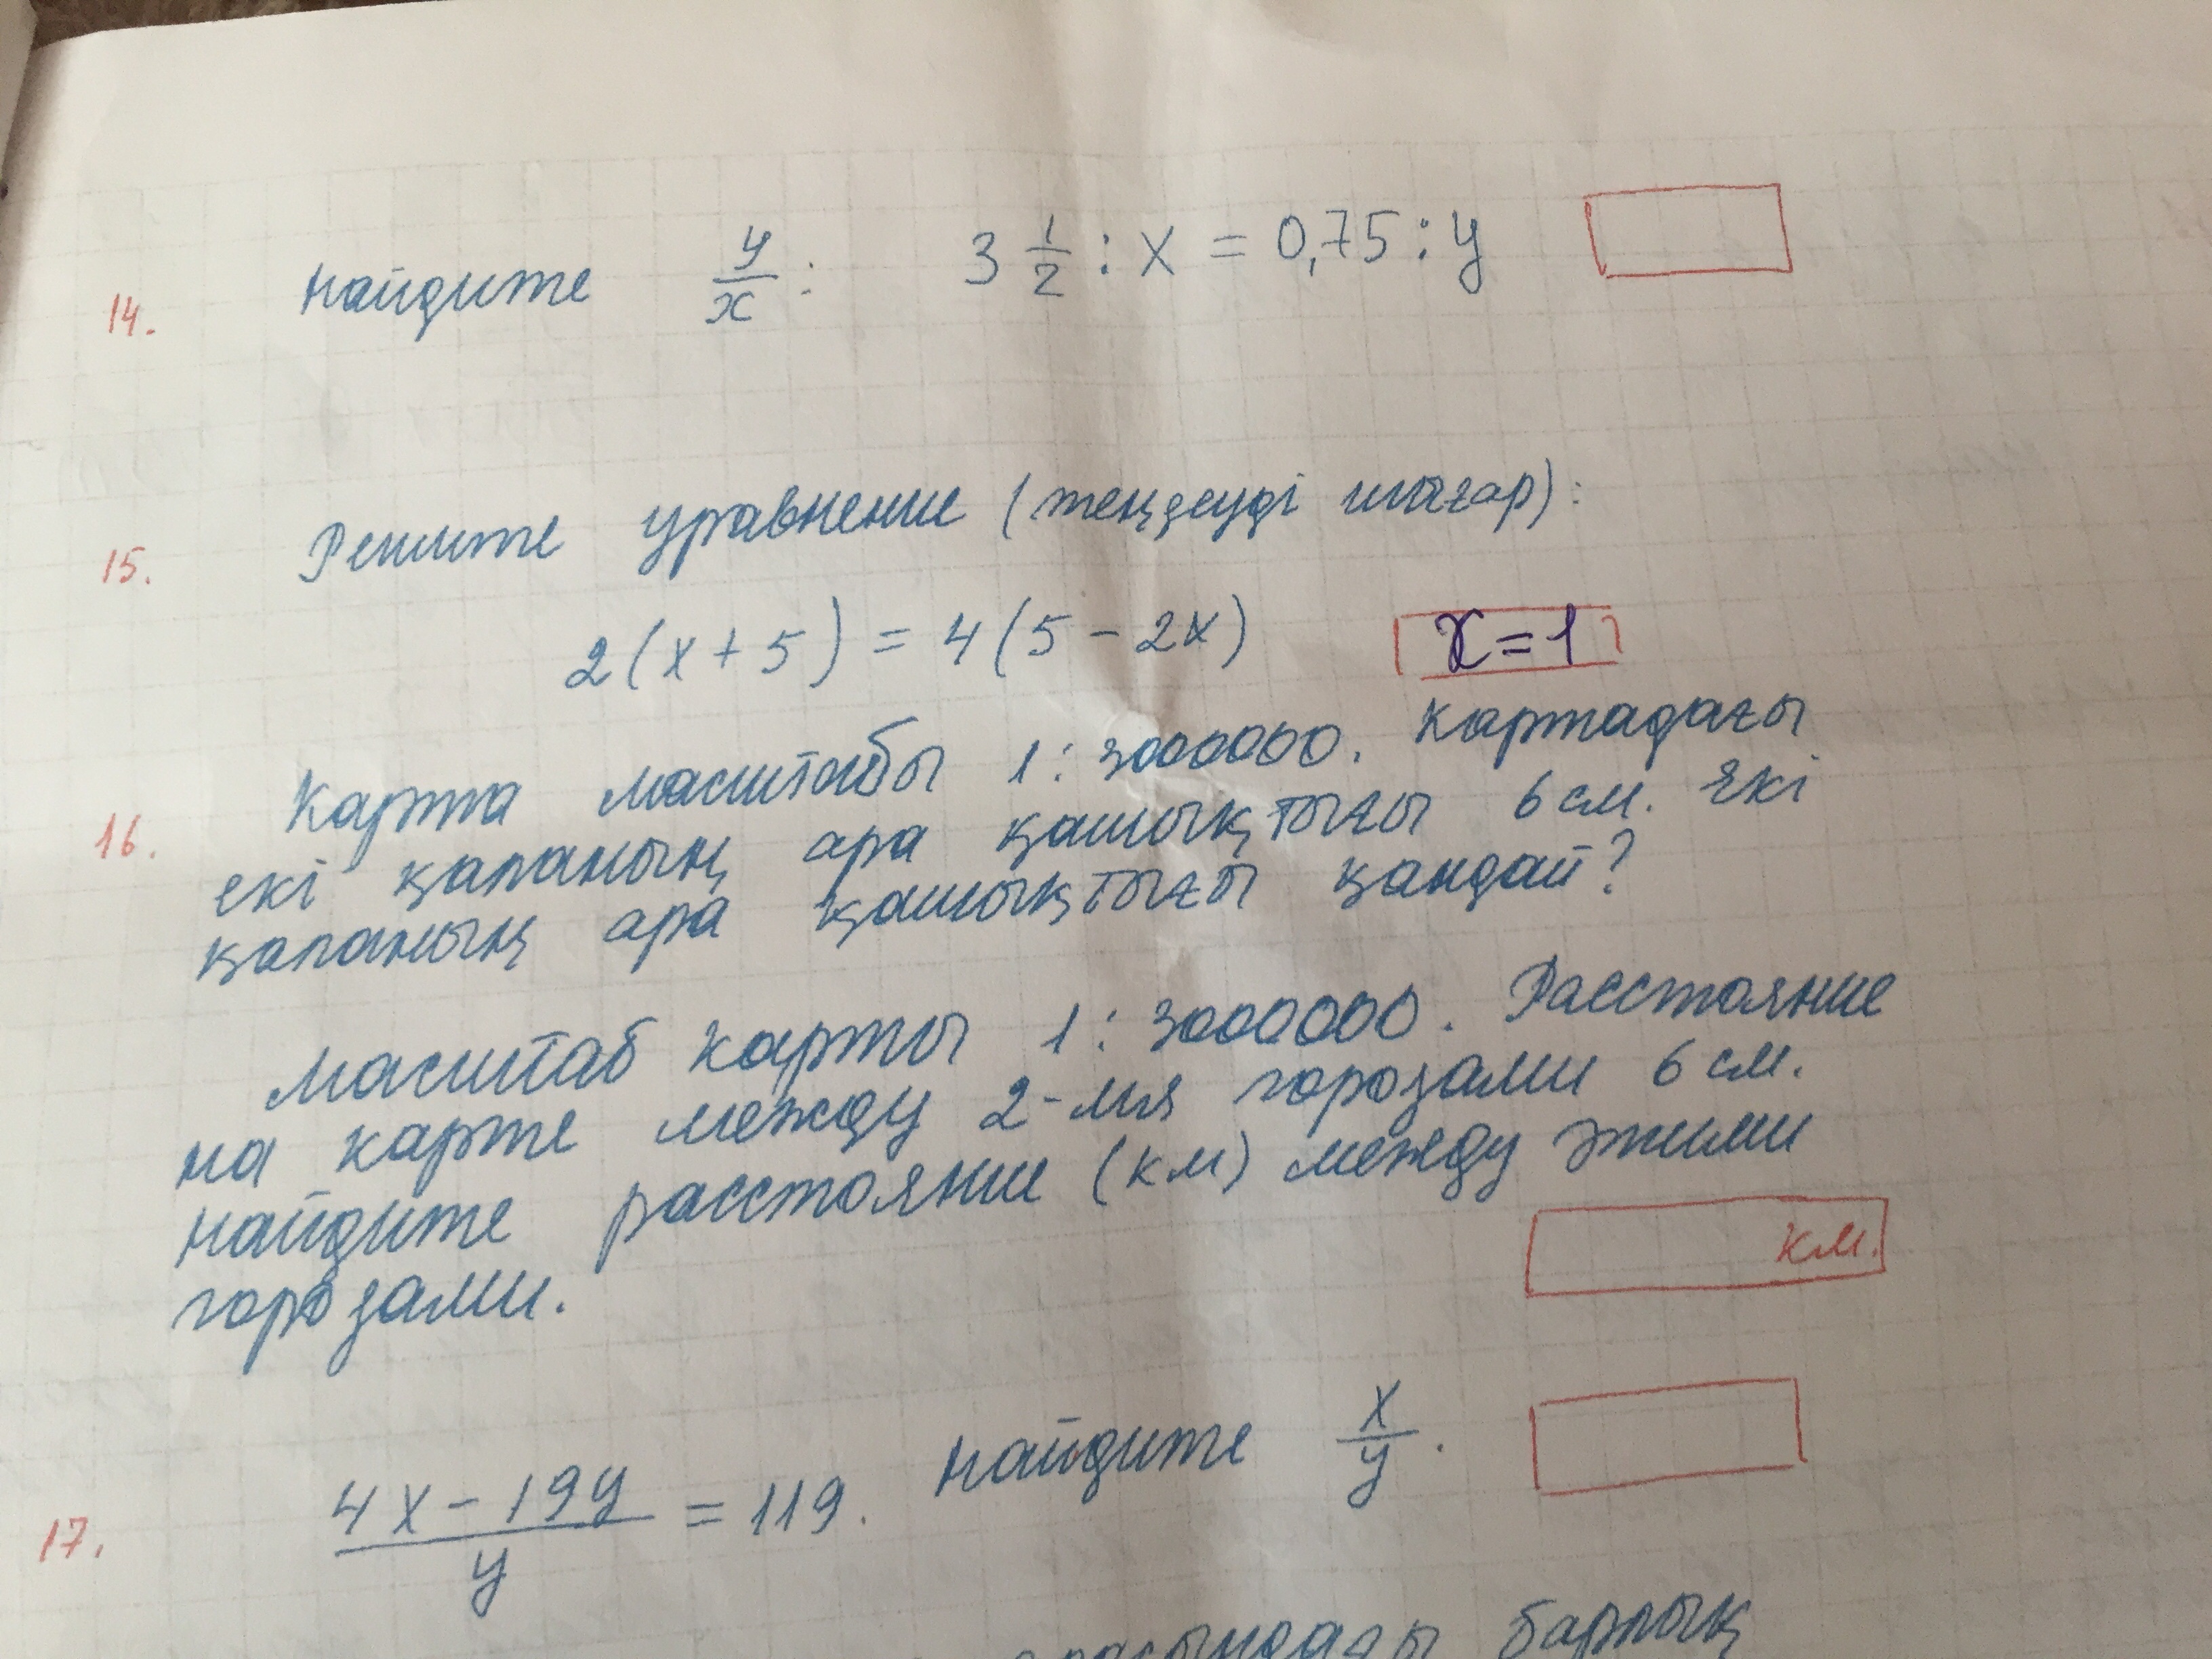 14. Найдите y/x : 3 1/2 : x = 0,75 : y
15. Решите уравнение (теңдеуді шығар):
2(x+5) = 4(5-2x) x=1
16. Карта масштабы 1:3000000. Картадағы
екі қаланың ара қашықтығы 6 см. Екі
қаланың ара қашықтығы қандай?
Масштаб карты 1:3000000. Расстояние
на карте между 2-мя городами 6 см.
Найдите расстояние (км) между этими
городами. км.
17. (4x-19y)/y = 119. Найдите x/y.
барлық